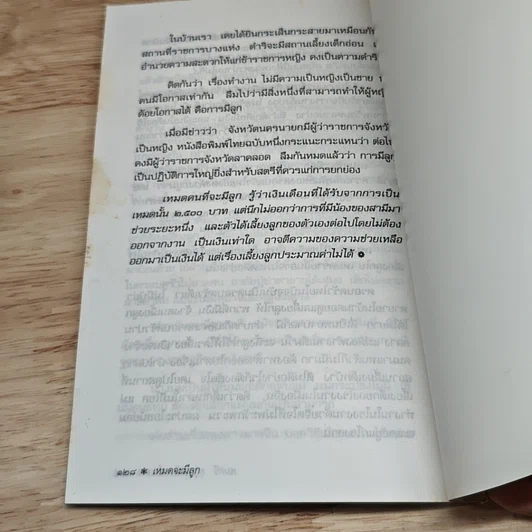 ในบ้านเรา เคยได้ยินกระเส็นกระสายมาเหมือนกั
สถานที่ราชการบางแห่ง ดำริจะมีสถานเลี้ยงเด็กอ่อน เ
อำนวยความสะดวกให้แก่ข้าราชการหญิง คงเป็นความดำริ
คิดกันว่า เรื่องทำงาน ไม่มีความเป็นหญิงเป็นชาย
คนมีโอกาสเท่ากัน ลืมไปว่ามีสิ่งหนึ่งที่สามารถทำให้ผู้หญ
ด้อยโอกาสได้ คือการมีลูก
เมื่อมีข่าวว่า จังหวัดนครนายกมีผู้ว่าราชการจังหวั
เป็นหญิง หนังสือพิมพ์ไทยฉบับหนึ่งกระแนะกระแหนว่า ต่อไป
คงมีผู้ว่าราชการจังหวัดลาคลอด ลืมกันหมดแล้วว่า การมีลูก
เป็นปฏิบัติการใหญ่ยิ่งสำหรับสตรีที่ควรแก่การยกย่อง
เหมดคนที่จะมีลูก รู้ว่าเงินเดือนที่ได้รับจากการเป็น
เหมดนั้น ๒,๕๐๐ บาท แต่นึกไม่ออกว่าการที่มีน้องของสามีมา
ช่วยระยะหนึ่ง และตัวได้เลี้ยงลูกของตัวเองต่อไปโดยไม่ต้อง
ออกจากงาน เป็นเงินเท่าใด อาจตีความของความช่วยเหลือ
ออกมาเป็นเงินได้ แต่เรื่องเลี้ยงลูกประมาณค่าไม่ได้
๑๒๘ * เหมดจะมีลูก